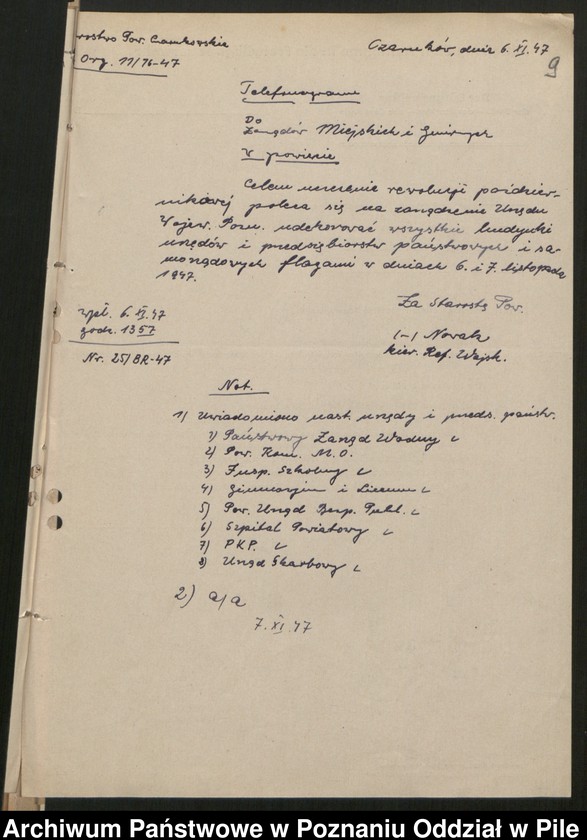 rostwo Pow. Czarnkowskie
Org. 11/76-47
Czarnków, dnia 6. XI. 47
9
Telefonogram
Do
Zarządów Miejskich i Gminnych
w powiecie
Celem uczczenia rewolucji paździer-
nikowej poleca się na zarządzenie Urzędu
Wojew. Pozn. udekorować wszystkie budynki
urzędów i przedsiębiorstw państwowych i sa-
morządowych flagami w dniach 6. i 7. listopada
1947.
Za Starostę Pow.
(-) Nowak
kier. Ref. Wojsk.
wpł. 6. XI. 47
godz. 1357
Nr. 25/BR-47
Not.
1) Uwiadomiono nast. urzędy i przeds. państw.
1) Państwowy Zarząd Wodny
2) Pow. Kom. M. O.
3) Insp. Szkolny
4) Gimnazjum i Liceum
5) Pow. Urząd Bezp. Publ.
6) Szpital Powiatowy
7) PKP.
8) Urząd Skarbowy
2) a/a
7. XI. 47
Archiwum Państwowe w Poznaniu Oddział w Pile